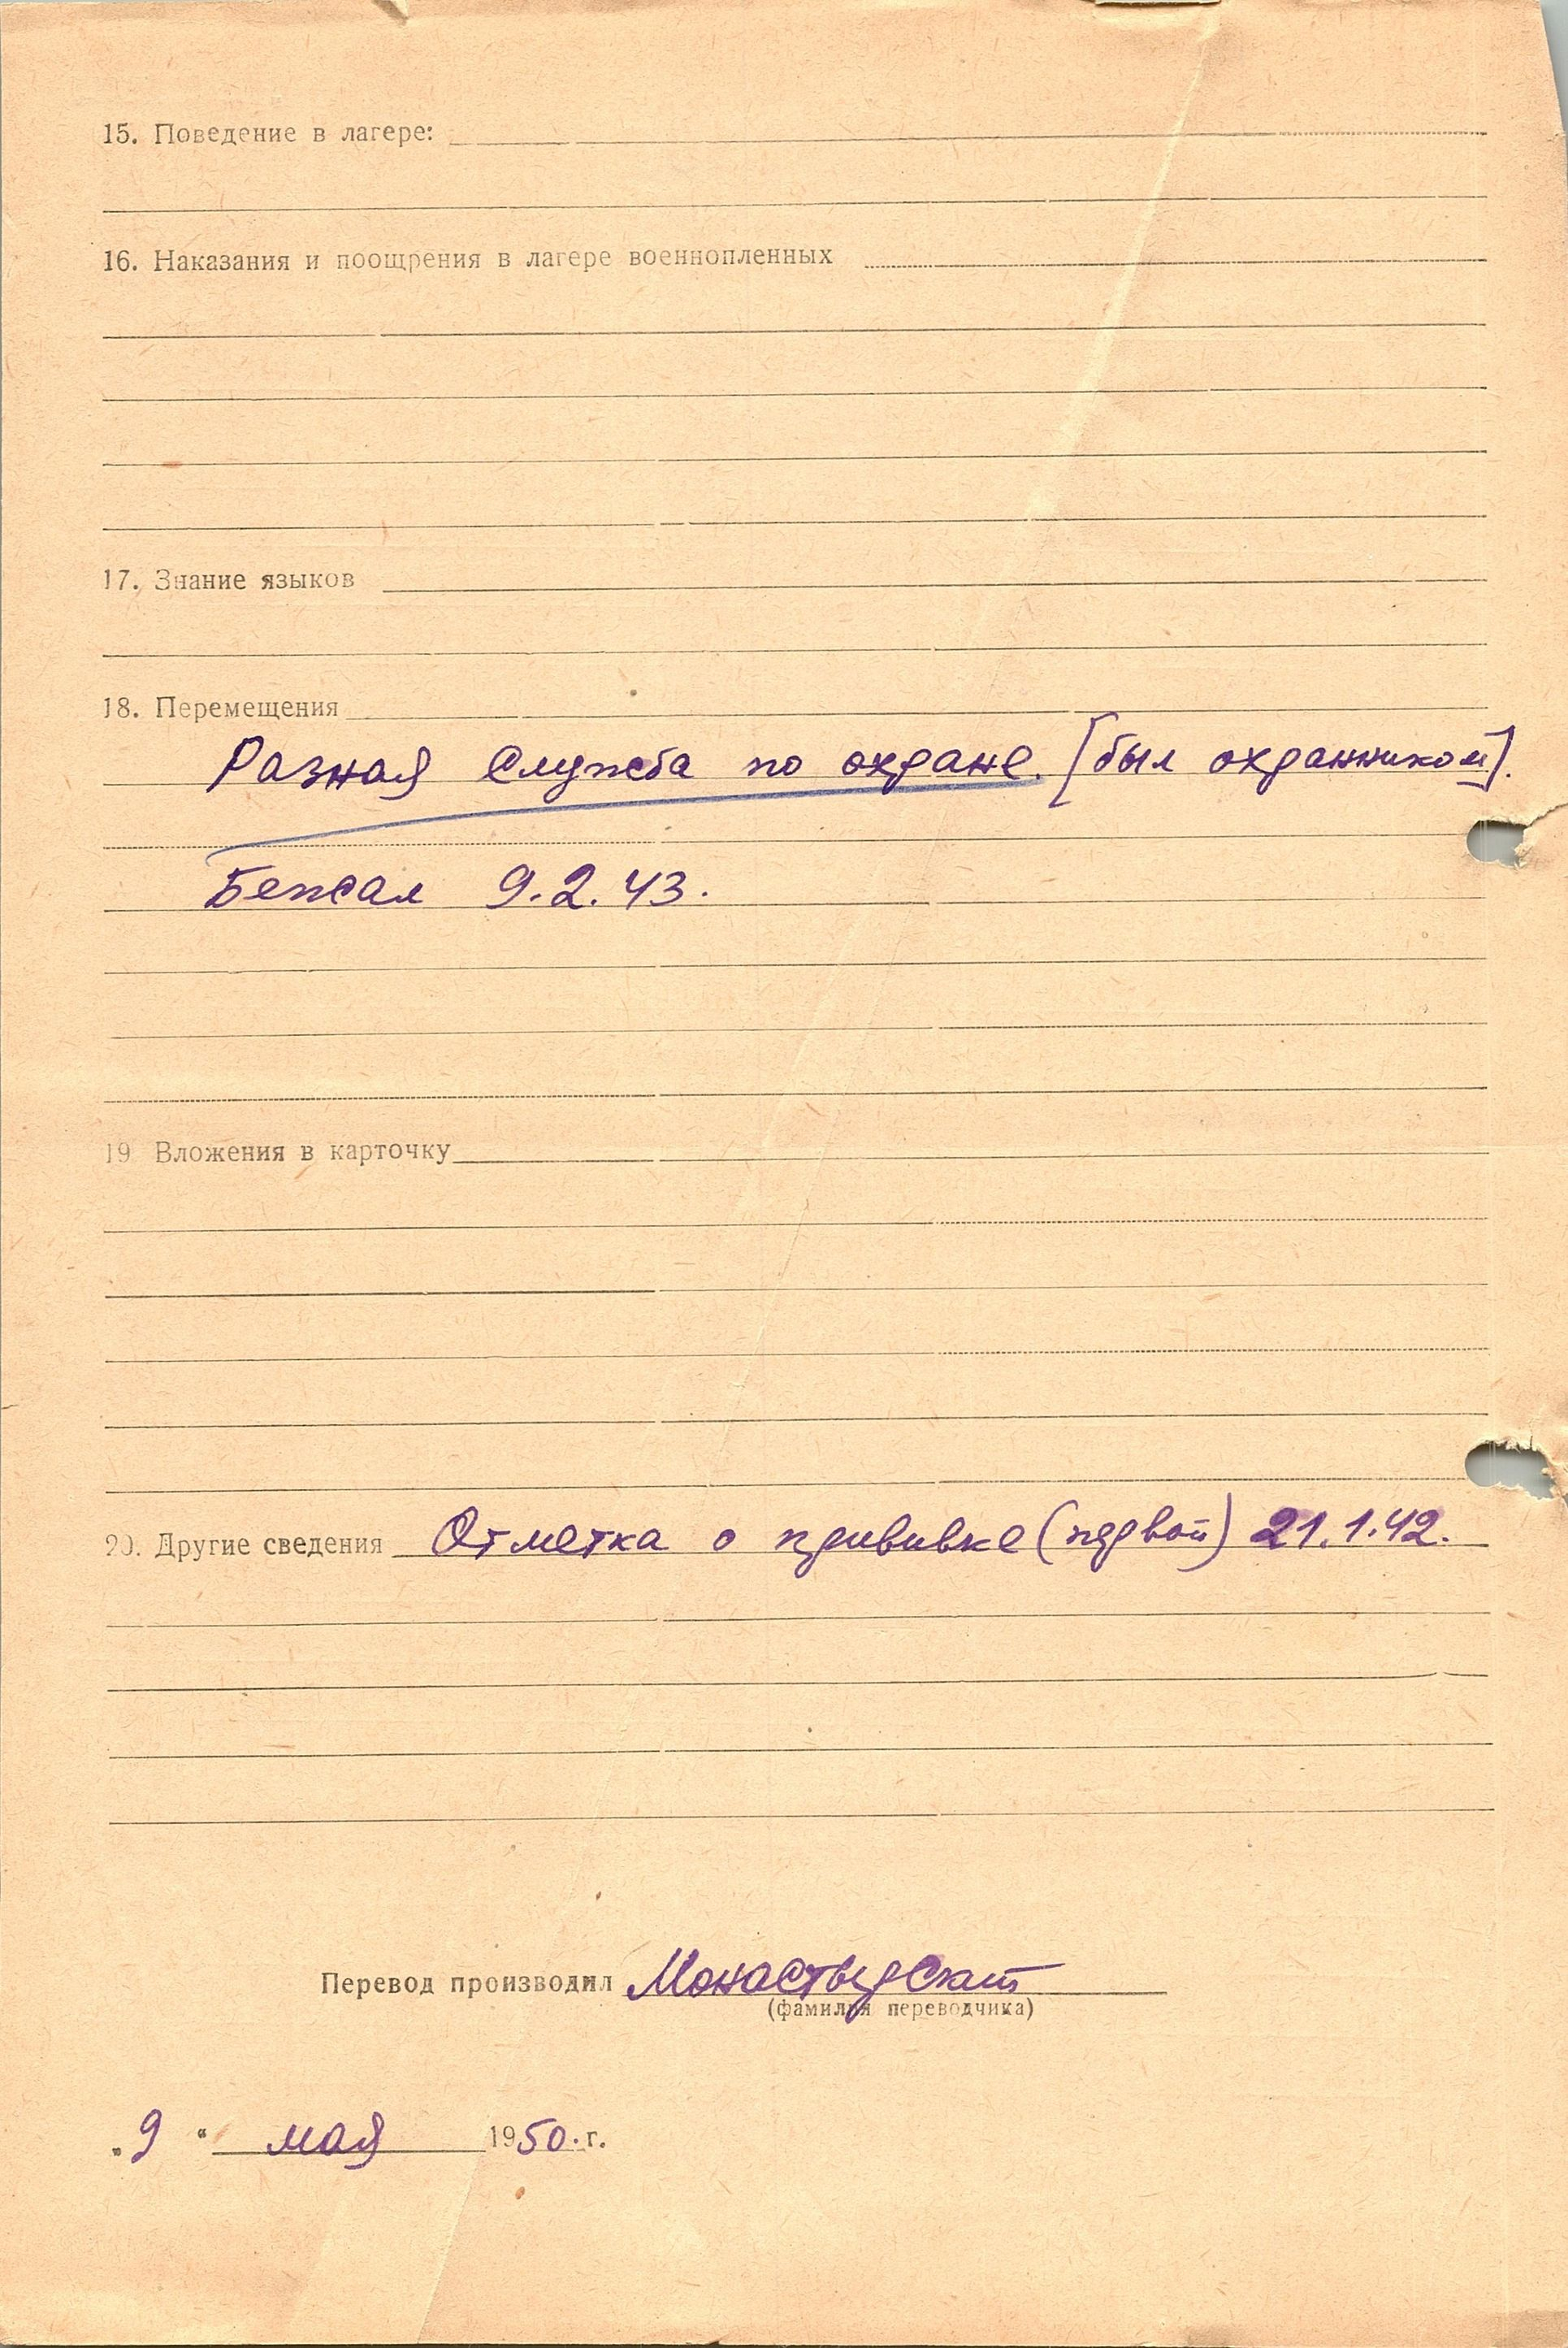 15. Поведение в лагере:
16. Наказания и поощрения в лагере военнопленных
17. Знание языков
18. Перемещения
Разная служба по охране. [был охранником].
Бежал 9.2.43.
19 Вложения в карточку
20. Другие сведения Отметка о прививке (первой) 21.1.42.
Перевод производил Монастырская
(фамилия переводчика)
„9“ мая 1950.г.